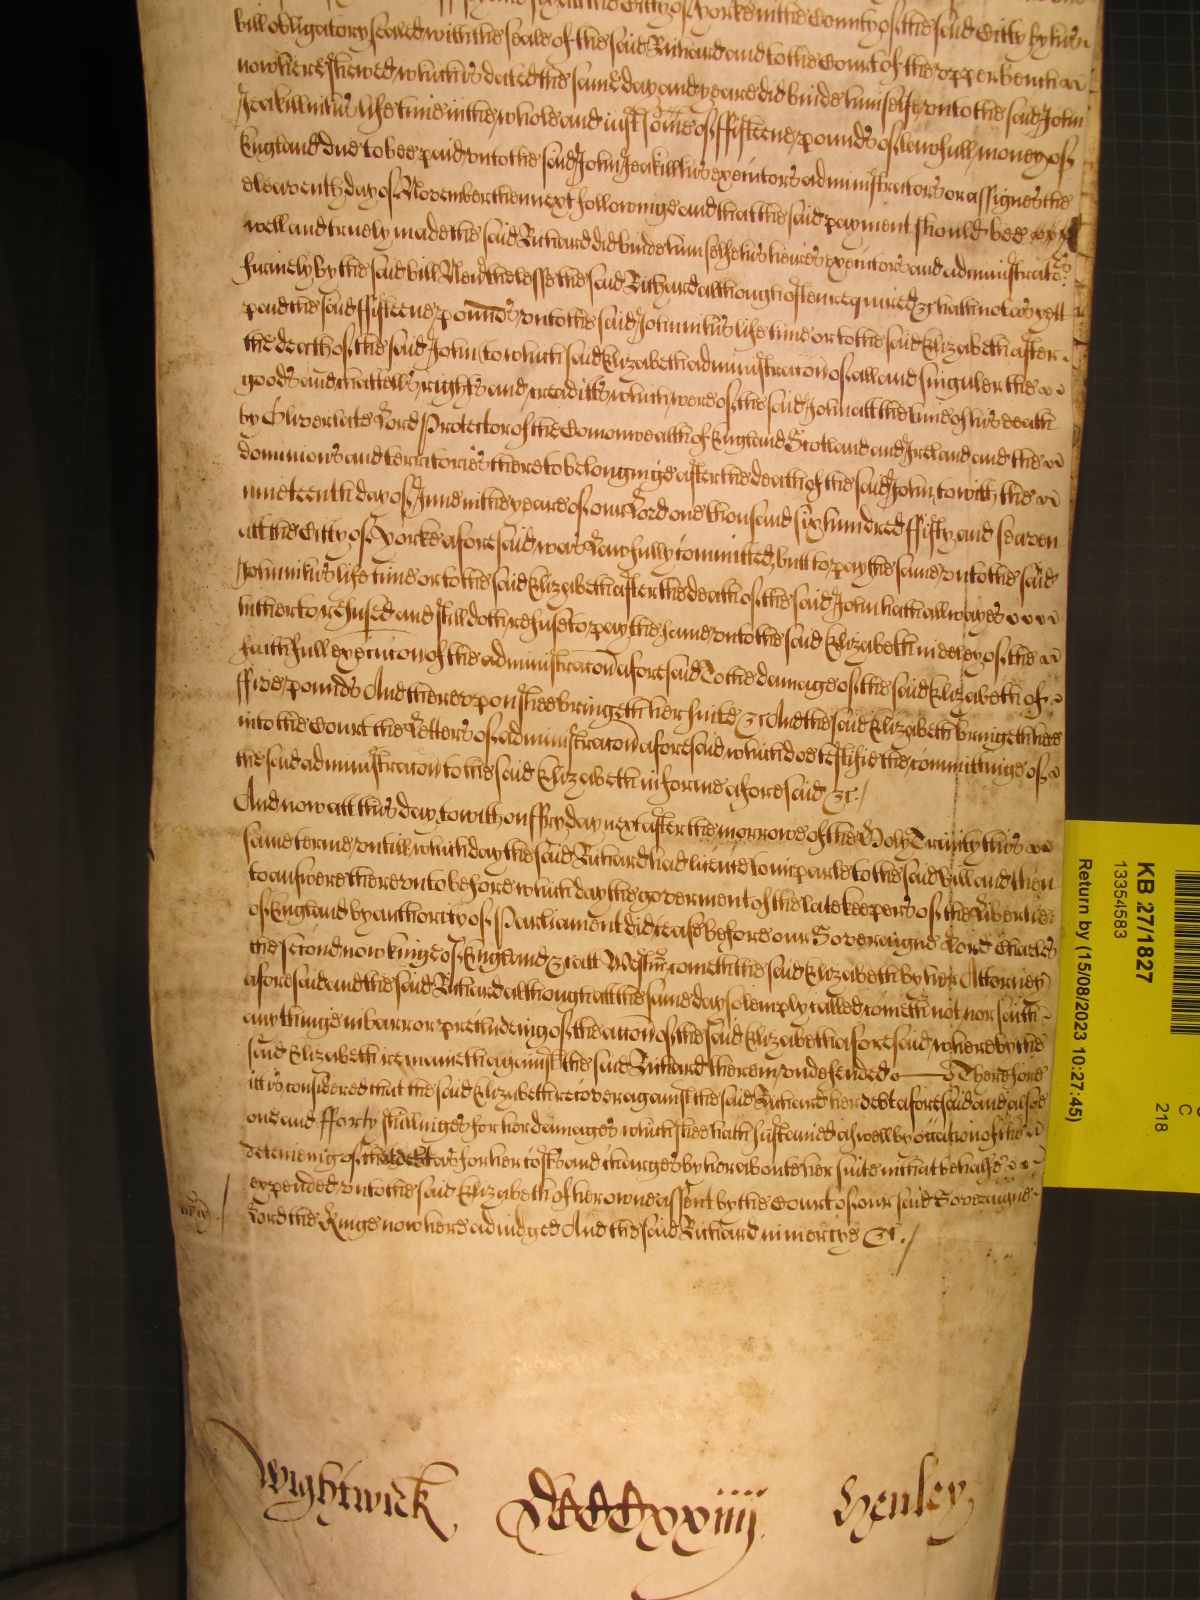 at the Citty of Yorke in the County of the said Citty by his
bill obligatory sealed with the seale of the said Richard and to the Court of the vpper bench
now here shewed which is dated the same day and yeare did binde himselfe vnto the said John
Jeakill in his life time in the whole and iust some of ffifteene pounds of lawfull money of
England due to bee paid vnto the said John Jeakill his executors administrators or assignes the
eleaventh day of November then next followinge and that the said payment should bee
well and truely made the said Richard did binde himselfe his heires executors and administrators
firmely by the said bill Neverthelesse the said Richard although often required &c hath not as yett
paid the said ffifteene pounds vnto the said John in his life time or to the said Elizabeth after
the death of the said John (to which said Elizabeth administracon of all and singuler the
goods and chattells rights and creaditts which were of the said John att the time of his death
by Oliver late Lord Protector of the Comonwealth of England Scotland and Ireland and the
dominions and territories thereto belonginge after the death of the said John, to with the
nineteenth day of June in the yeare of our Lord one thousand six hundred ffifty and seaven
att the Citty of Yorke aforesaid was lawfully committed, butt to pay the same vnto the said
John in his life time or to the said Elizabeth after the death of the said John hath allwayes
hitherto refused and still doth refuse to pay the same vnto the said Elizabeth in deley of the
faithfull execucon of the administracon aforesaid To the damage of the said Elizabeth of
ffive pounds And therevpon shee bringeth her suite &c And the said Elizabeth bringeth here
into the Court the Letters of administracon aforesaid which doe testifie the committinge of
the said administracon to the said Elizabeth in forme aforesaid &c./
And now att this day, to with on ffryday next after the morrowe of the Holy Trinity this
same terme, vntill which day the said Richard had licence to imparle to the said bill and then
to answere therevnto before which day the goverment of the late keepers of the Libertie
of England by authority of Parliament did cease before our Soveraigne Lord Charles
the second now kinge of England &c att Westm cometh the said Elizabeth by his Attorney
aforesaid and the said Richard although att the same day solemply called cometh not nor saith
any thinge in barr or preiudeing of the accon of the said Elizabeth aforesaid, whereby the
said Elizabeth remaineth against the said Richard therein vndefended Therefore
itt is considered that the said Elizabeth recover against the said Richard her debt aforesaid and alsoe
one and fforty shillinges for her damages which shee hath susteined aswell by occation of the
deteineing of as for her costs and charges by her aboute her suite in that behalfe
expended, vnto the said Elizabeth of her owne assent by the Court of our said Soveraigne
Lord the Kinge now here adiudged And the said Richard in mercye &c./
Wightwick DCCCCxxiiij Henley
KB 27/1827
13354583
Return by (15/08/2023 10:27:45)
C
218